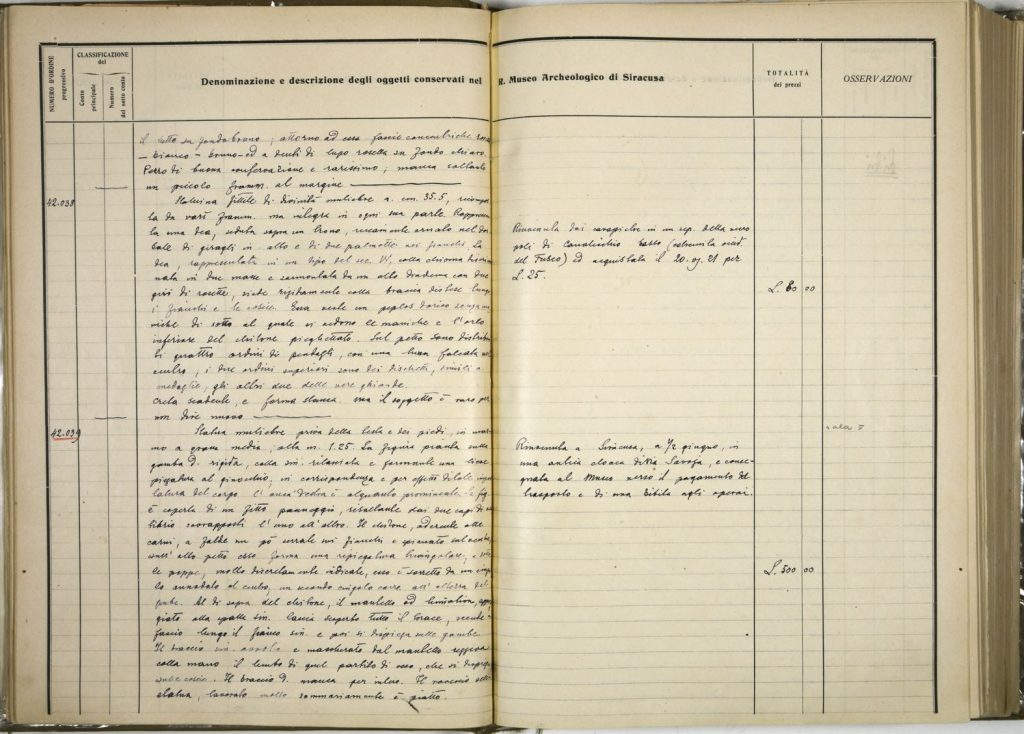 NUMERO D'ORDINE progressivo
CLASSIFICAZIONE del
Conto principale
Numero del sotto conto
Denominazione e descrizione degli oggetti conservati nel R. Museo Archeologico di Siracusa
TOTALITÀ dei prezzi
OSSERVAZIONI
il tutto su fondo bruno; attorno ad essa fascie concentriche
- bianco - bruno - ed a denti di lupo rosetta su fondo chiaro.
Pezzo di buona conservazione e rarissimo; manca soltanto
un piccolo framm. al margine
42.038
Statuina fittile di divinità muliebre a. cm. 35.5, recompo
sta da vari framm. ma integra in ogni sua parte. Rappresen
ta una dea, seduta sopra un trono, riccamente ornato nel dor
sale di in alto e di due palmette nei fianchi. La
dea, rappresentata in un tipo del sec. V°, colla chioma
in due masse e sormontata da un alto diadema con due
giri di rosette, siede rigidamente colle braccia distese lungo
i fianchi e le coscie. Essa veste un peplos dorico senza ma
niche di sotto al quale si vedono le maniche e l'orlo
inferiore del chitone pieghettato. Sul petto sono distribui
ti quattro ordini di pendagli, con una luna falcata nel
centro, i due ordini superiori sono dei dischetti, simili a
medaglie, gli altri due delle vere ghiande.
Creta scadente, e forma stanca. ma il soggetto è raro per
non dire nuovo
Rinvenuta dai in un sep. della necro
poli di Canalicchio (estremità
del Fusco) ed acquistata il 20.VI.21 per
L. 25.
L. 60 00
42.039
Statua muliebre priva della testa e dei piedi, in mar
mo a grana media, alta m. 1.25. La figura pianta sulla
gamba d. rigida, colla sin. rilasciata e formante una lieve
piegatura al ginocchio; in corrispondenza e per effetto di tale
del corpo l'anca destra è alquanto prominente. La fig.
è coperta di un fitto panneggio, risultante dai due capi di ve
stiario sovrapposti l'uno all'altro. Il chitone, aderente alle
carni, a falde un pò serrate sui fianchi e spianate sul
sull'alto petto esso forma una ripiegatura triangolare, e sotto
le poppe, molto discretamente indicate, esso è sorretto da un
annodato al centro, un secondo cingolo corre all'altezza del
pube. Al di sopra del chitone, il mantello od himation appog
giato alla spalla sin. lascia scoperto tutto il torace, scende a
fascio lungo il fianco sin. e poi si dispiega sulle gambe.
Il braccio sin. avvolto e mascherato dal mantello reggeva
colla mano il lembo di quel partito di esso, che si dispiega
sulle coscie. Il braccio d. manca per intero. Il rovescio della
statua, lavorato molto sommariamente è piatto.
Rinvenuta a Siracusa, a 1/2 giugno, in
una antica cloaca di Via Savoja, e conse
gnata al Museo verso il pagamento del
trasporto e di una bibita agli operai.
L. 500 00